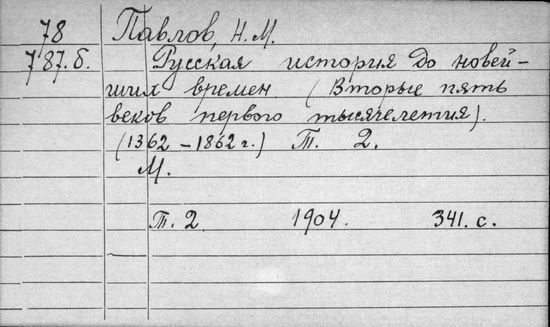 78 Павлов, Н. М.
7'87.б. Русская история до новей-
ших времен. (Вторые пять
веков первого тысячелетия).
(1362 - 1862 г.) Т. 2.
М.
Т. 2. 1904. 341. с.